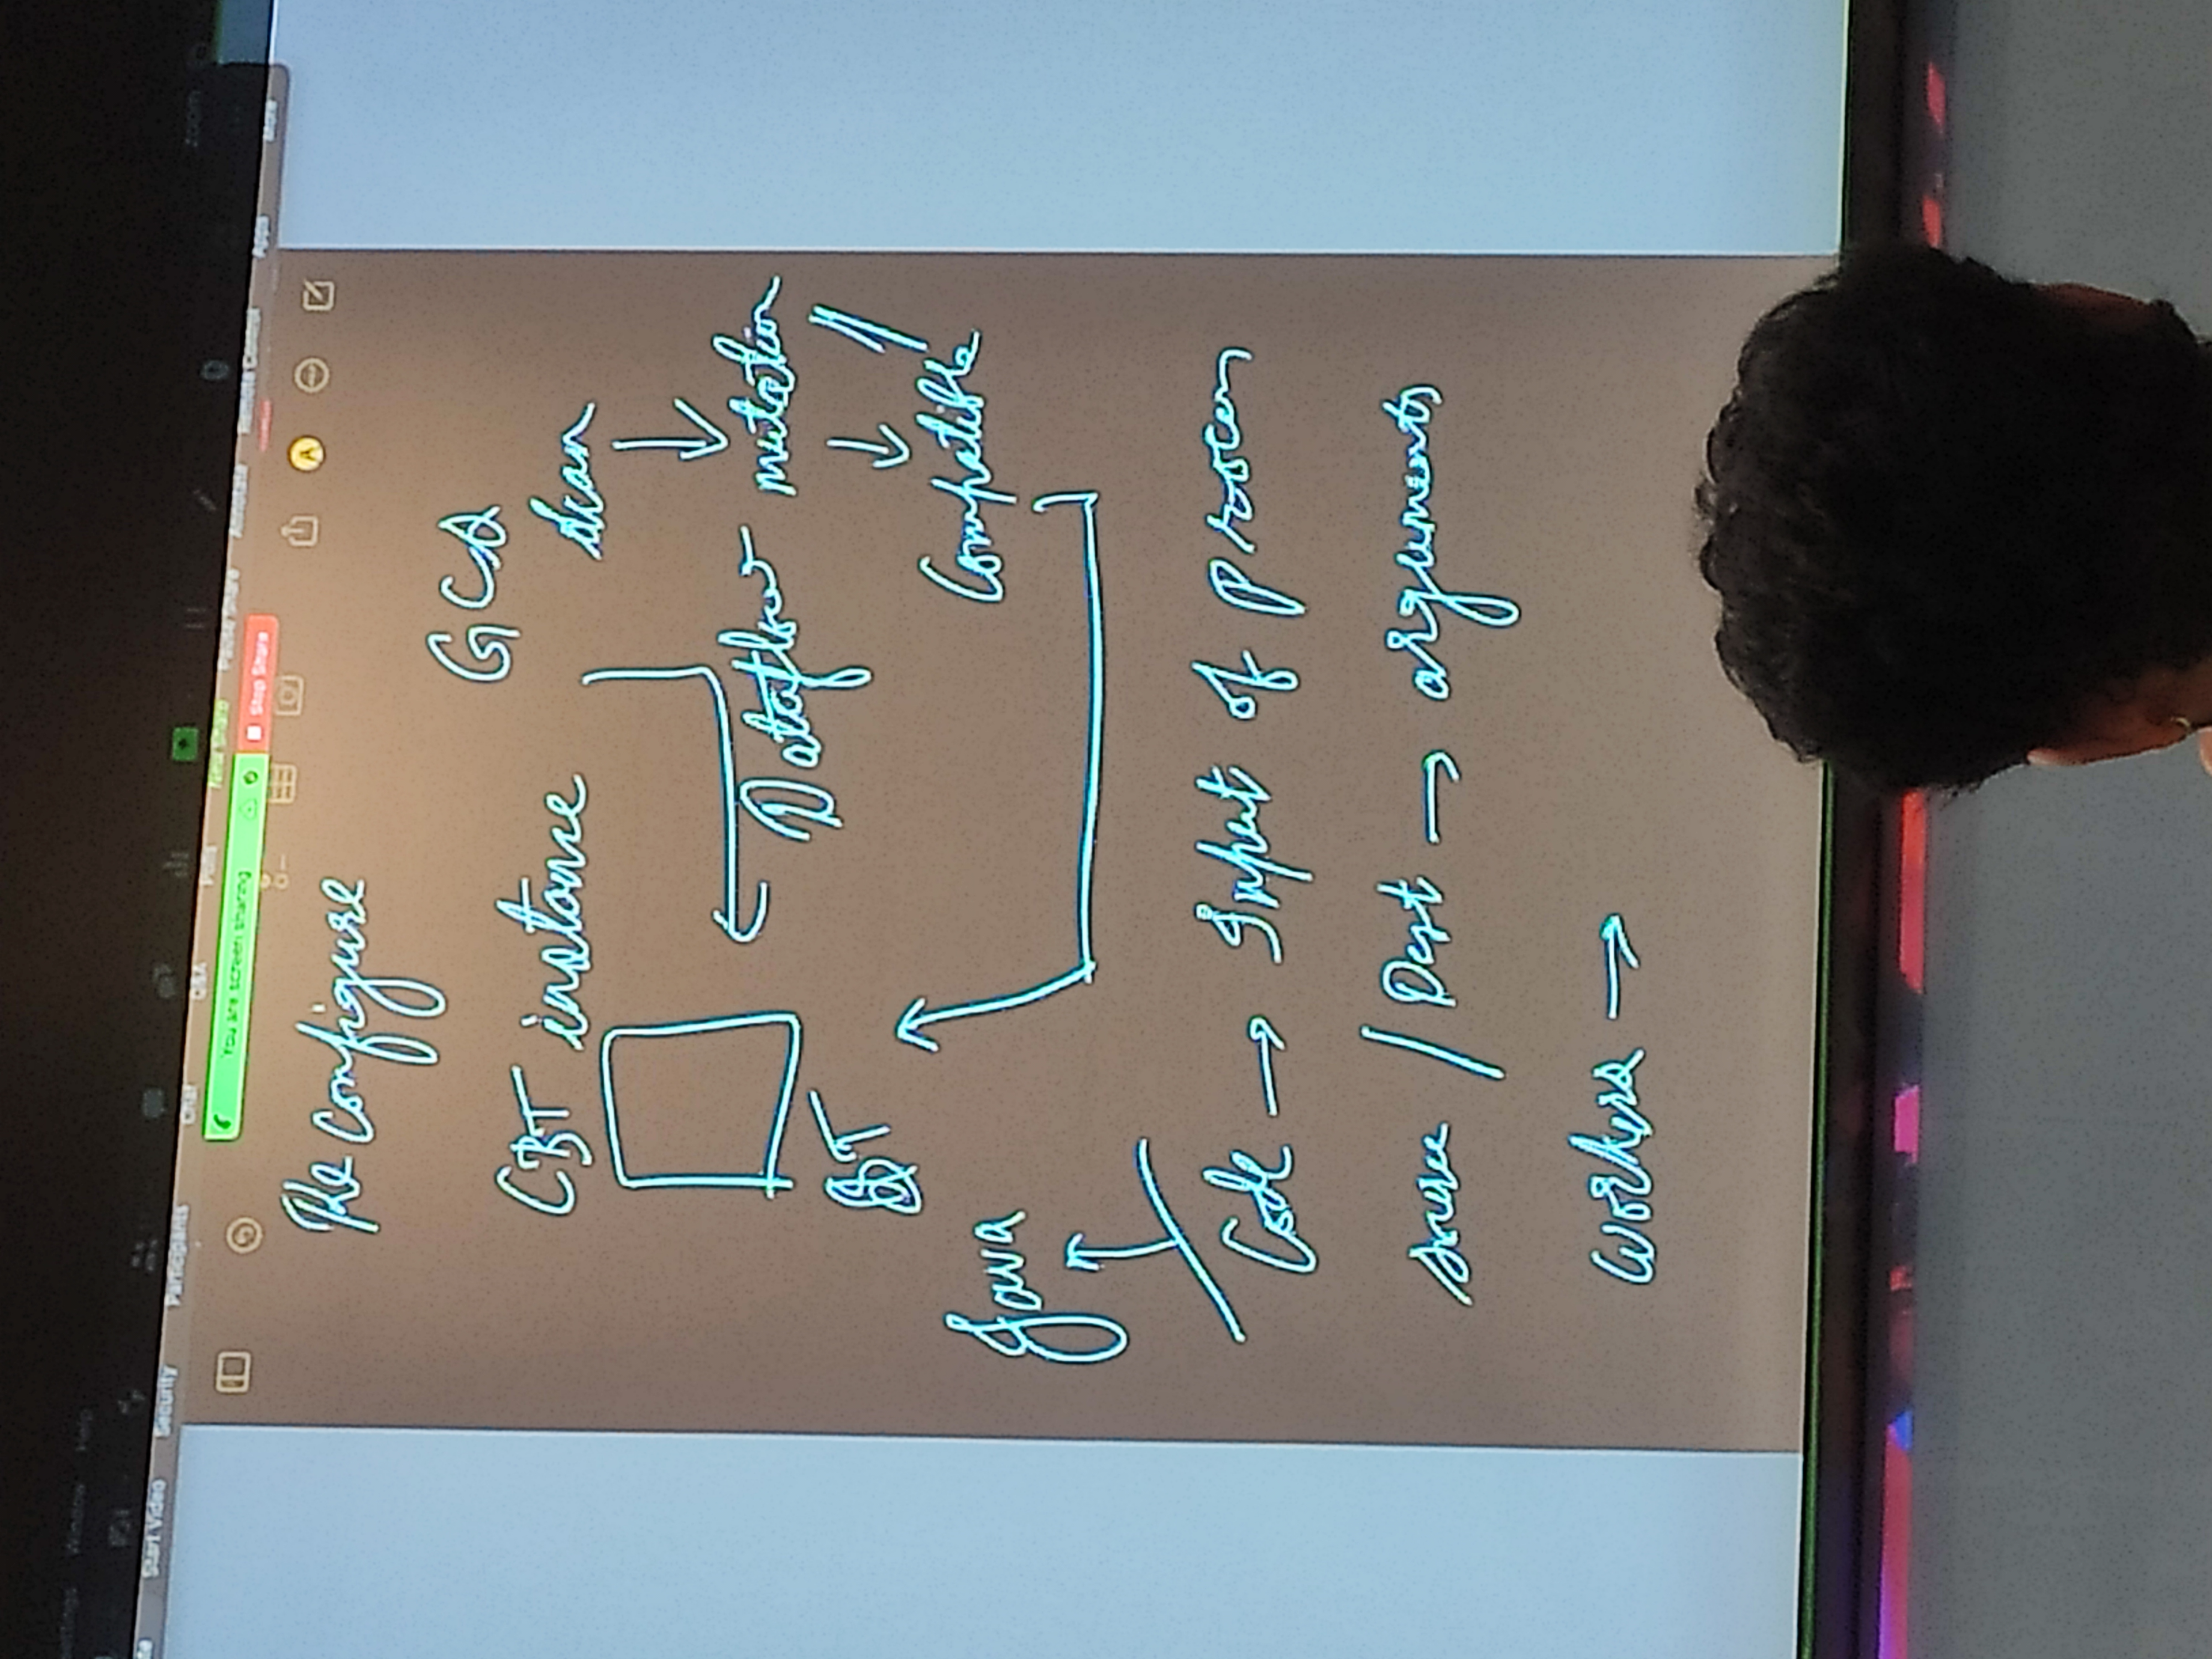 Settings Window Help
Start Video Security Participants Chat Q&A Polls New Share Pause Share Annotate Remote Control Apps More
zoom
You are screen sharing Stop Share
Re configure
GCS
CBT instance
scan
Dataflow mutation
BT
Compatible
Java
Code → Input of process
source / Dest → arguments
workers →